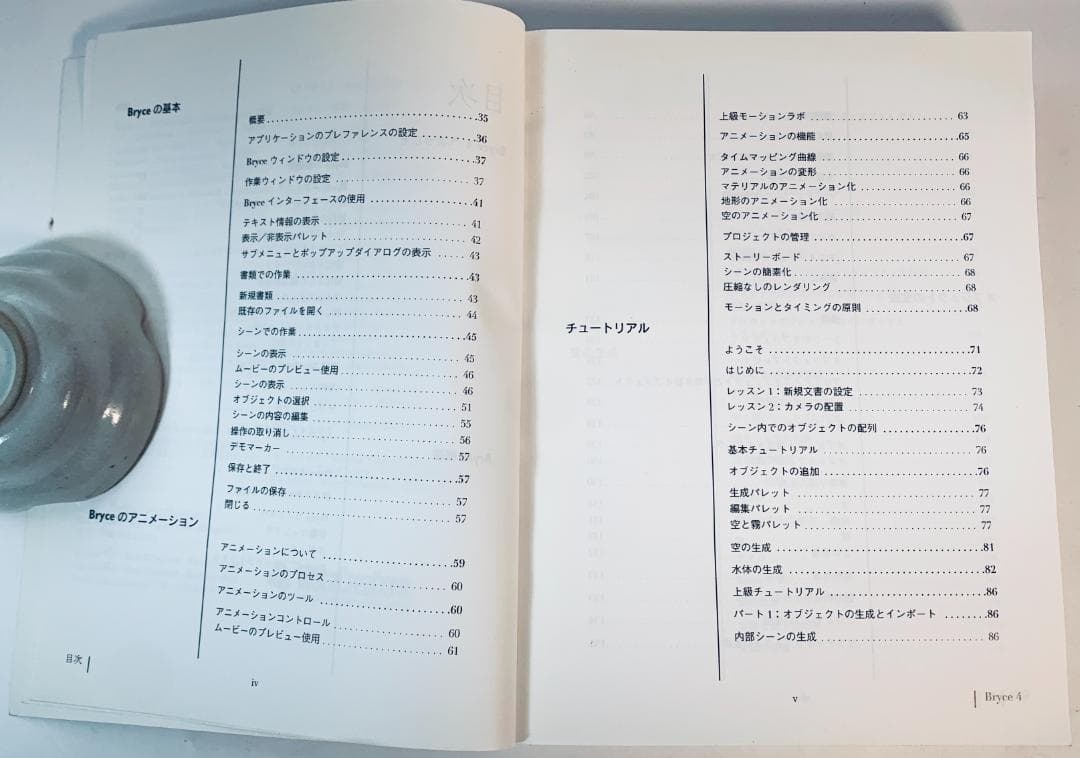 Bryce の基本
概要 35
アプリケーションのプレファレンスの設定 36
Bryce ウィンドウの設定 37
作業ウィンドウの設定 37
Bryce インターフェースの使用 41
テキスト情報の表示 41
表示／非表示パレット 42
サブメニューとポップアップダイアログの表示 43
書類での作業 43
新規書類 43
既存のファイルを開く 44
シーンでの作業 45
シーンの表示 45
ムービーのプレビュー使用 46
シーンの表示 46
オブジェクトの選択 51
シーンの内容の編集 55
操作の取り消し 56
デモマーカー 57
保存と終了 57
ファイルの保存 57
閉じる 57
Bryce のアニメーション
アニメーションについて 59
アニメーションのプロセス 60
アニメーションのツール 60
アニメーションコントロール 60
ムービーのプレビュー使用 61
目次
iv
上級モーションラボ 63
アニメーションの機能 65
タイムマッピング曲線 66
アニメーションの変形 66
マテリアルのアニメーション化 66
地形のアニメーション化 66
空のアニメーション化 67
プロジェクトの管理 67
ストーリーボード 67
シーンの簡素化 68
圧縮なしのレンダリング 68
モーションとタイミングの原則 68
チュートリアル
ようこそ 71
はじめに 72
レッスン1：新規文書の設定 73
レッスン2：カメラの配置 74
シーン内でのオブジェクトの配列 76
基本チュートリアル 76
オブジェクトの追加 76
生成パレット 77
編集パレット 77
空と霧パレット 77
空の生成 81
水体の生成 82
上級チュートリアル 86
パート1：オブジェクトの生成とインポート 86
内部シーンの生成 86
v
Bryce 4